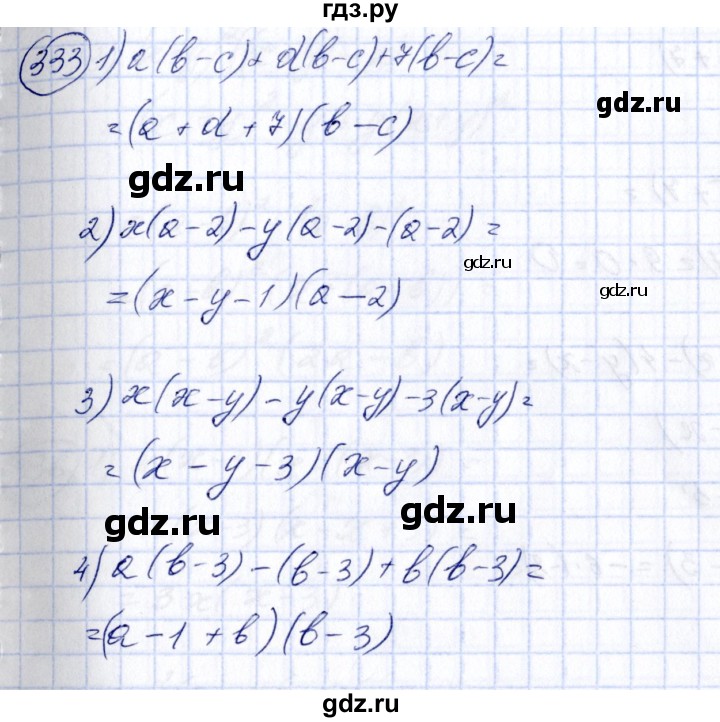 гдз.ру
333 1) a(b-c)+d(b-c)+7(b-c)=
=(a+d+7)(b-c)
gdz.ru
gdz.ru
2) x(a-2)-y(a-2)-(a-2)=
gdz.ru
=(x-y-1)(a-2)
gdz.ru
3) x(x-y)-y(x-y)-3(x-y)=
=(x-y-3)(x-y)
gdz.ru
gdz.ru
4) a(b-3)-(b-3)+b(b-3)=
=(a-1+b)(b-3)
gdz.ru